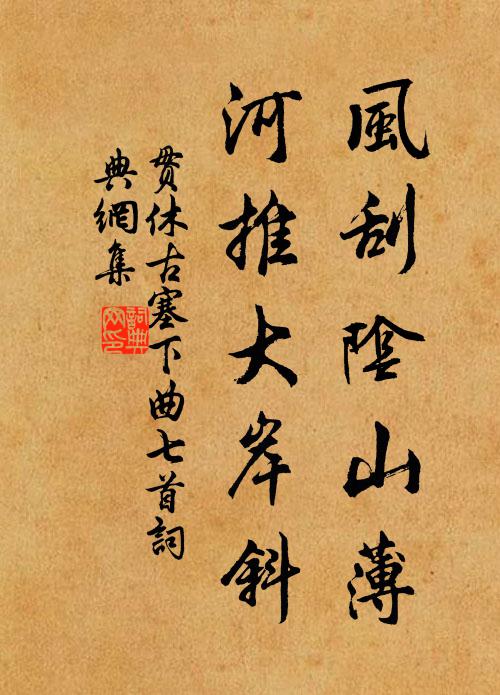 風刮陰山薄
河推大岸斜
貫休古塞下曲七首詞
典網集
詞典
网印